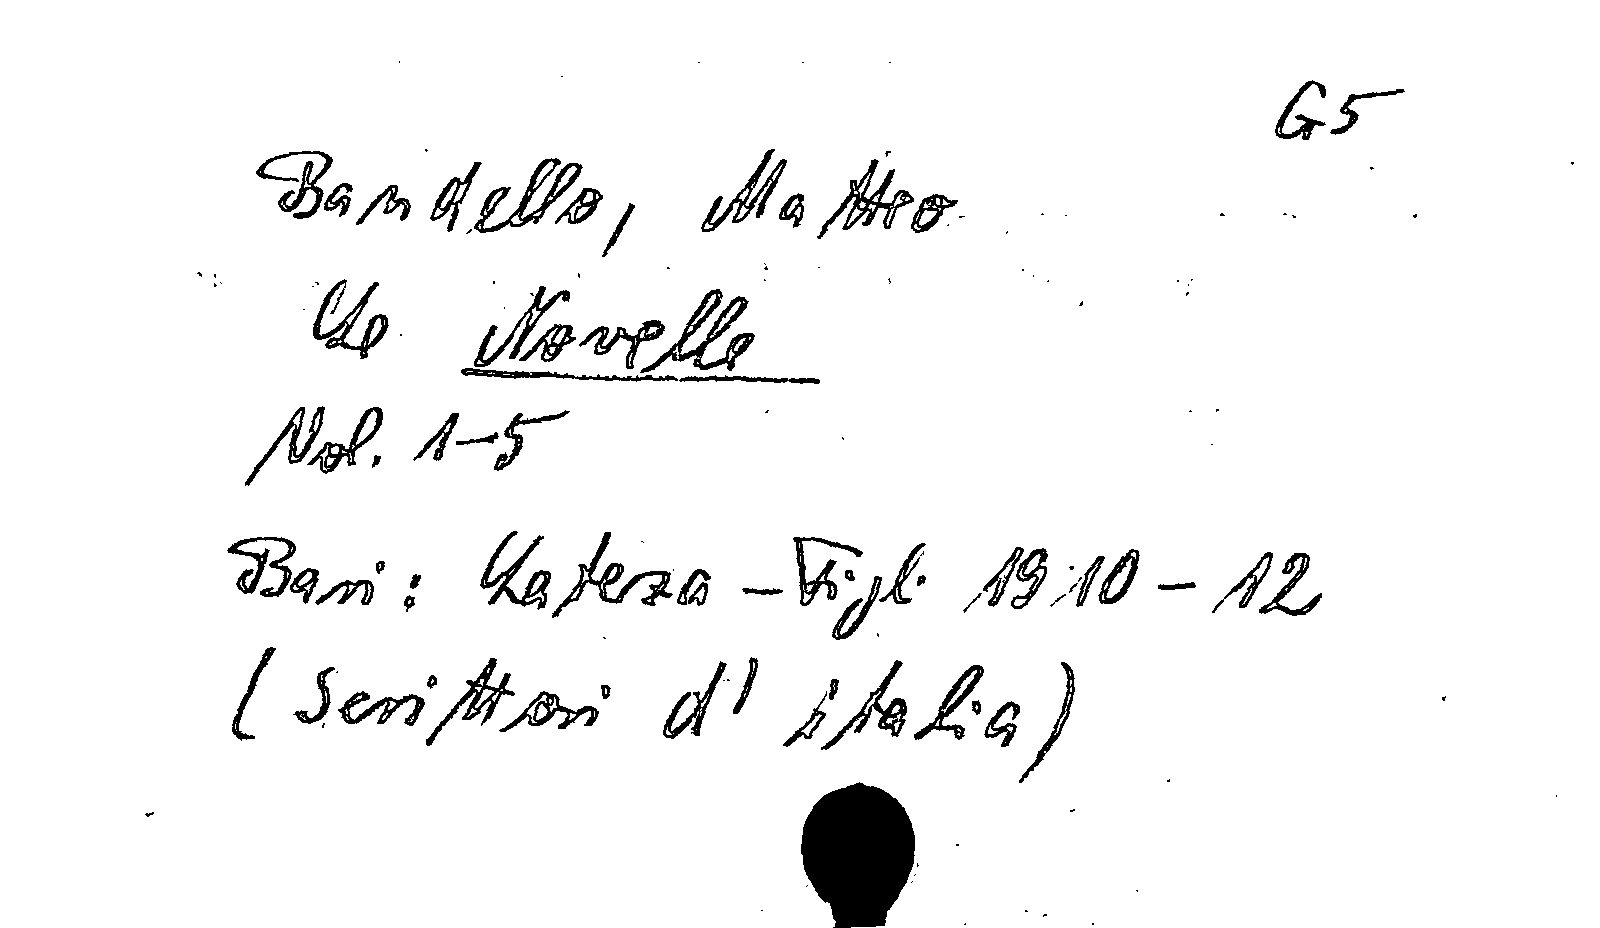 G5
Bandello, Matteo
Le Novelle
Vol. 1-5
Bari: Laterza - Figli 1910 - 12
(Scrittori d' italia)